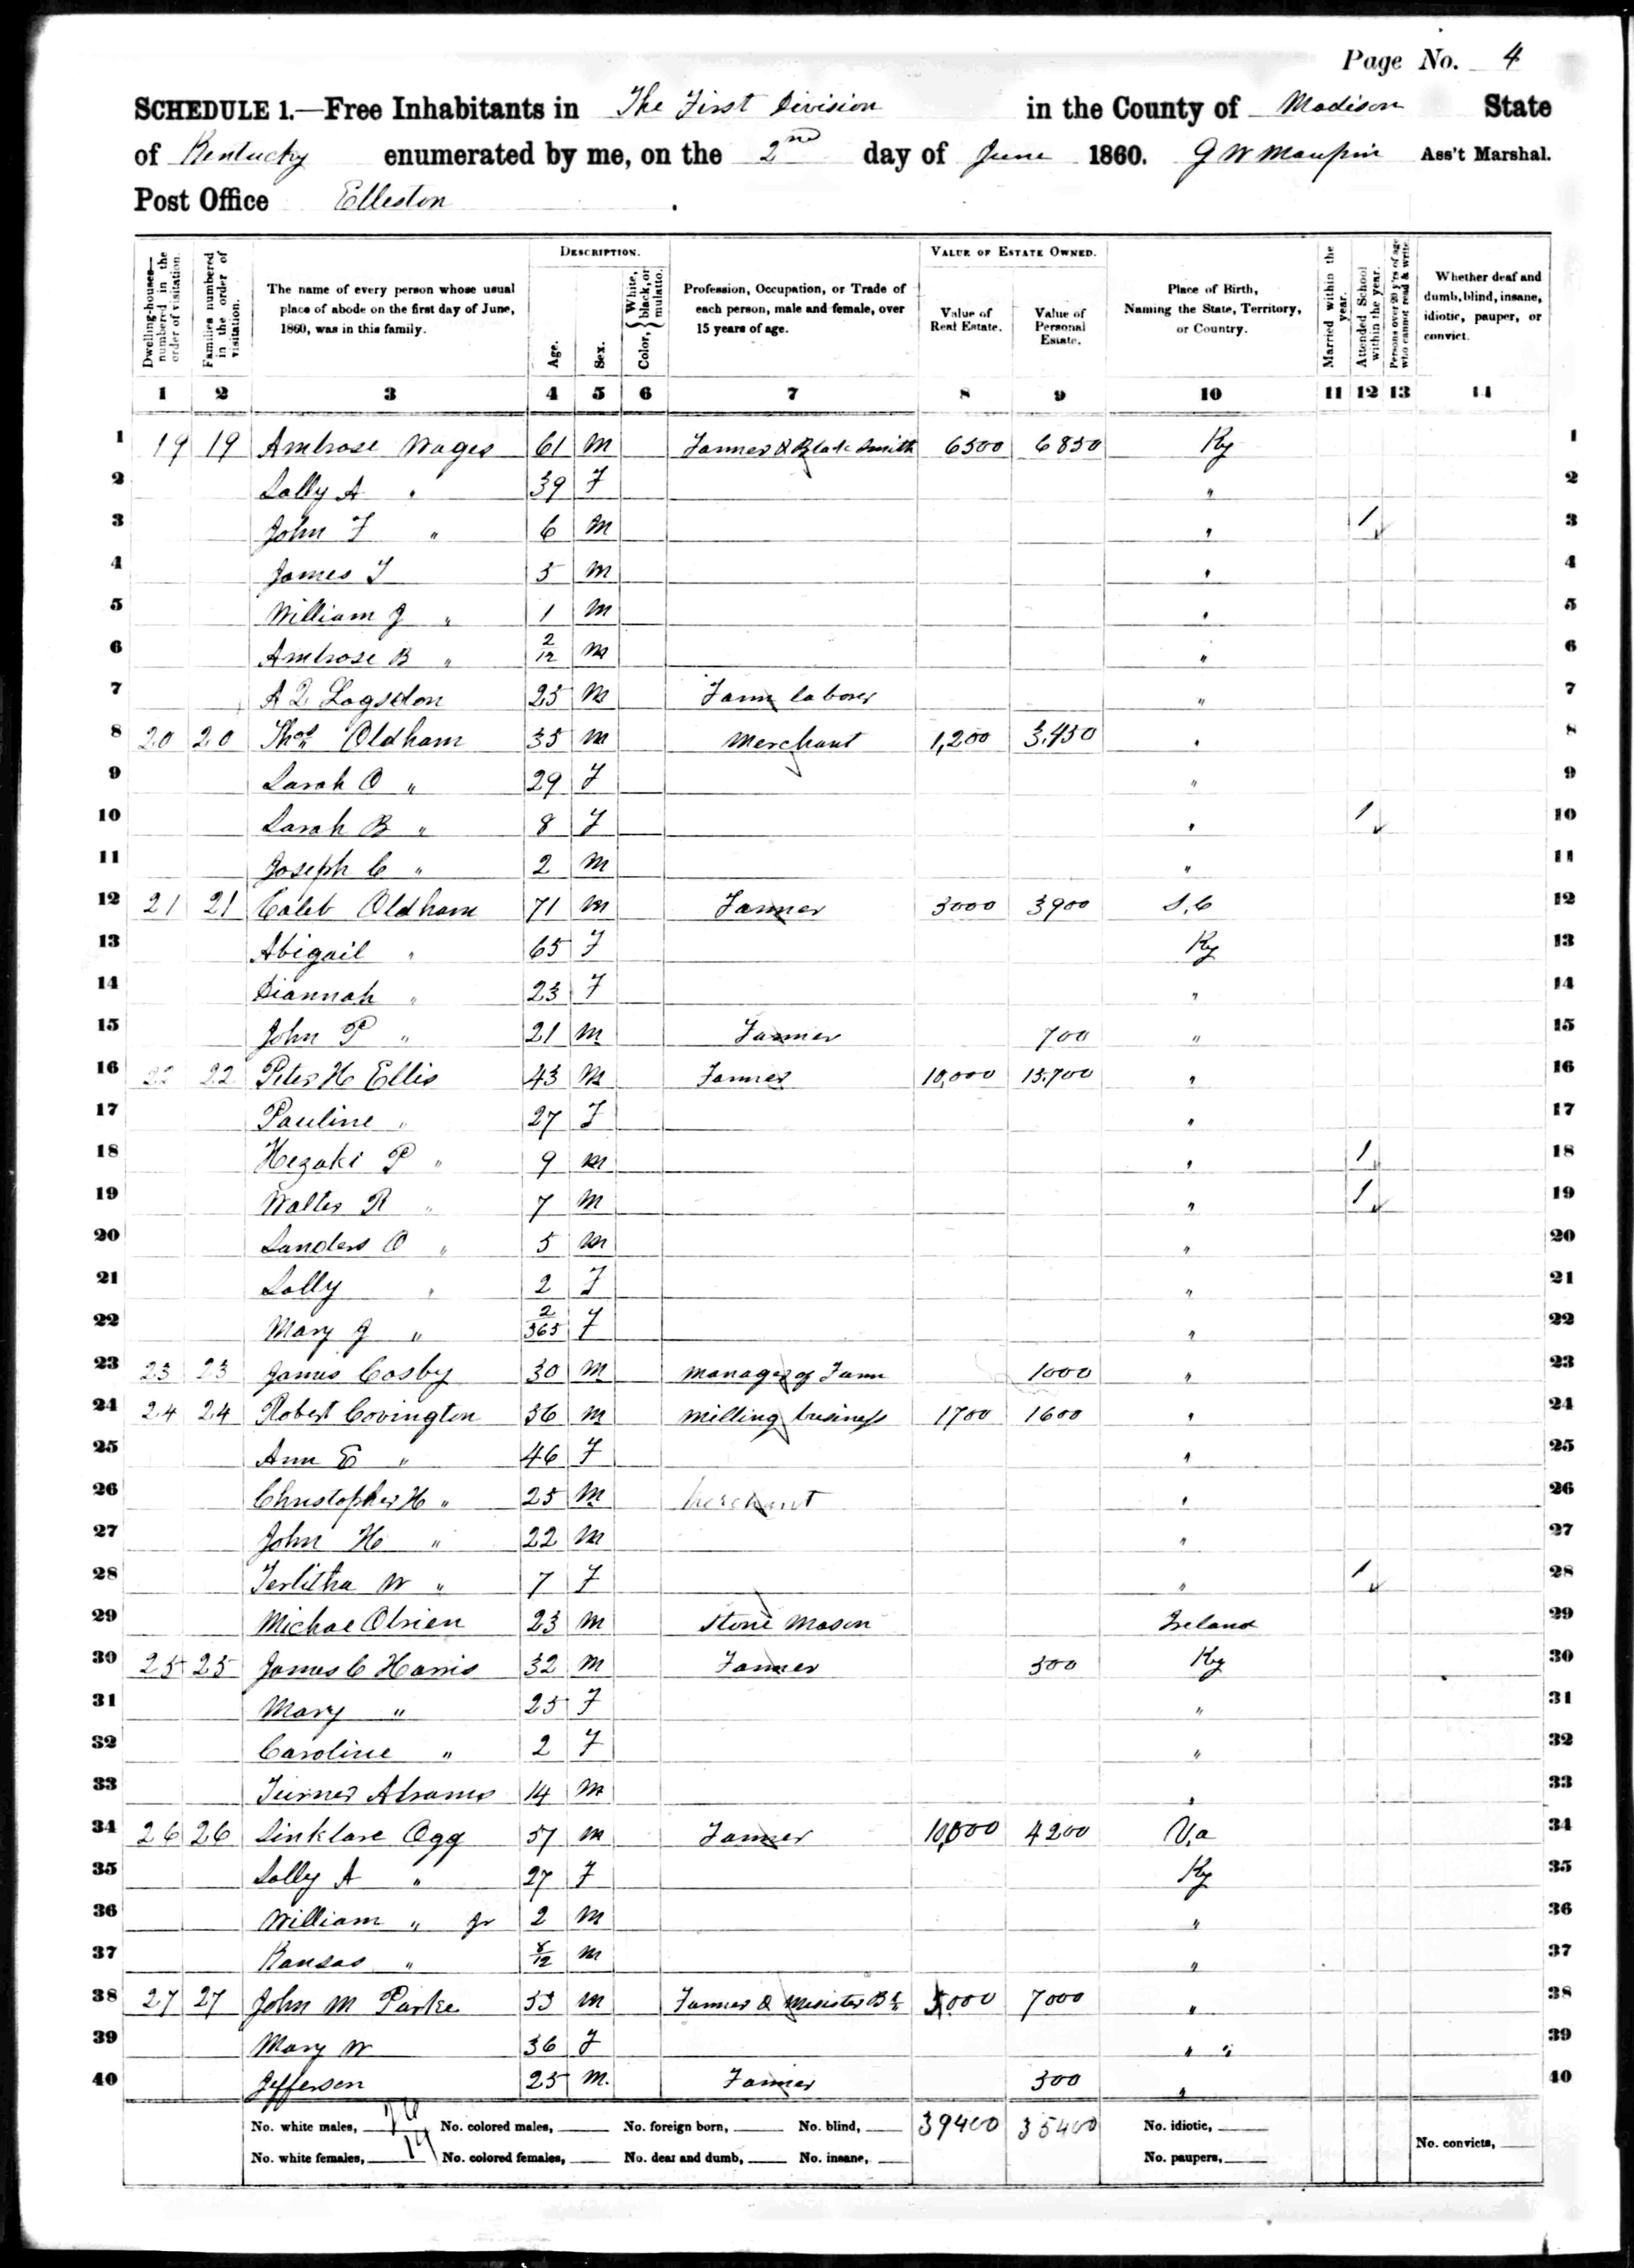 Page No. 4
SCHEDULE 1.—Free Inhabitants in The First Division in the County of Madison State
of Kentucky enumerated by me, on the 2nd day of June 1860. G W Maupin Ass't Marshal.
Post Office Elleston
Dwelling-houses—numbered in the order of visitation.
Families numbered in the order of visitation.
The name of every person whose usual place of abode on the first day of June, 1860, was in this family.
DESCRIPTION.
Age.
Sex.
Color, { White, black, or mulatto.
Profession, Occupation, or Trade of each person, male and female, over 15 years of age.
VALUE OF ESTATE OWNED.
Value of Real Estate.
Value of Personal Estate.
Place of Birth, Naming the State, Territory, or Country.
Married within the year.
Attended School within the year.
Persons over 20 y'rs of age who cannot read & write.
Whether deaf and dumb, blind, insane, idiotic, pauper, or convict.
1 2 3 4 5 6 7 8 9 10 11 12 13 14
1 19 19 Ambrose Wages 61 M Farmer & Black Smith 6500 6850 Ky 1
2 Sally A " 39 F " 2
3 John F " 6 M " 1 3
4 James T 5 M " 4
5 William J " 1 M " 5
6 Ambrose B " 2/12 M " 6
7 A Q Logsdon 25 M Farm laborer " 7
8 20 20 Thos Oldham 35 M Merchant 1,200 3,450 " 8
9 Sarah O " 29 F " 9
10 Sarah B " 8 F " 1 10
11 Joseph C " 2 M " 11
12 21 21 Caleb Oldham 71 M Farmer 3000 3900 S,C 12
13 Abigail " 65 F Ky 13
14 Diannah " 23 F " 14
15 John P " 21 M Farmer 700 " 15
16 22 22 Peter H Ellis 43 M Farmer 10,000 15,700 " 16
17 Pauline " 27 F " 17
18 Hezaki P " 9 M " 1 18
19 Walter R " 7 M " 1 19
20 Sanders O " 5 M " 20
21 Sally " 2 F " 21
22 Mary J " 2/365 F " 22
23 23 23 James Cosby 30 M Manager of Farm 1000 " 23
24 24 24 Robert Covington 36 M Milling business 1700 1600 " 24
25 Ann E " 46 F " 25
26 Christopher H " 25 M Merchant " 26
27 John H " " 22 M " 27
28 Terlitha W " 7 F " 1 28
29 Michae Obrien 23 M Stone Mason Ireland 29
30 25 25 James C Harris 32 M Farmer 500 Ky 30
31 Mary " 25 F " 31
32 Caroline " 2 F " 32
33 Turner Abrams 14 M " 33
34 26 26 Sinklare Ogg 57 M Farmer 10,000 4200 Va 34
35 Sally A " 27 F Ky 35
36 William " Jr 2 M " 36
37 Kansas " 8/12 M " 37
38 27 27 John M Parke 53 M Farmer & Minister 5,000 7000 " 38
39 Mary W 36 F " " 39
40 Jefferson 25 M. Farmer 300 " 40
No. white males, No. colored males, No. foreign born, No. blind, 39400 35400 No. idiotic,
No. white females, No. colored females, No. deaf and dumb, No. insane, No. paupers, No. convicts,